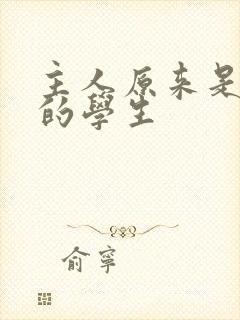 主人原来是
的學生
俞寧